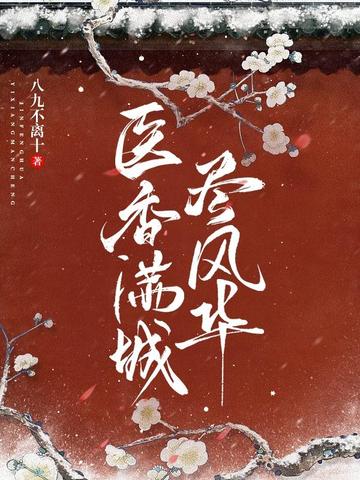 医香满城
尽风华
八九不离十 著
JINFENGHUA
YIXIANGMANCHENG